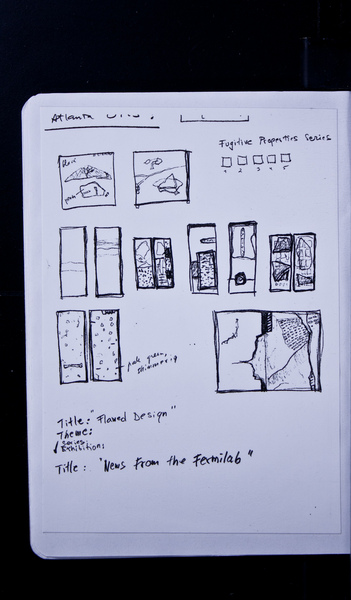 Atlanta
Fugitive Properties Series
1 2 3 4 5
pale green,
Title: "Flawed Design"
Theme:
Series
Exhibition:
Title: "News From the Fermilab"